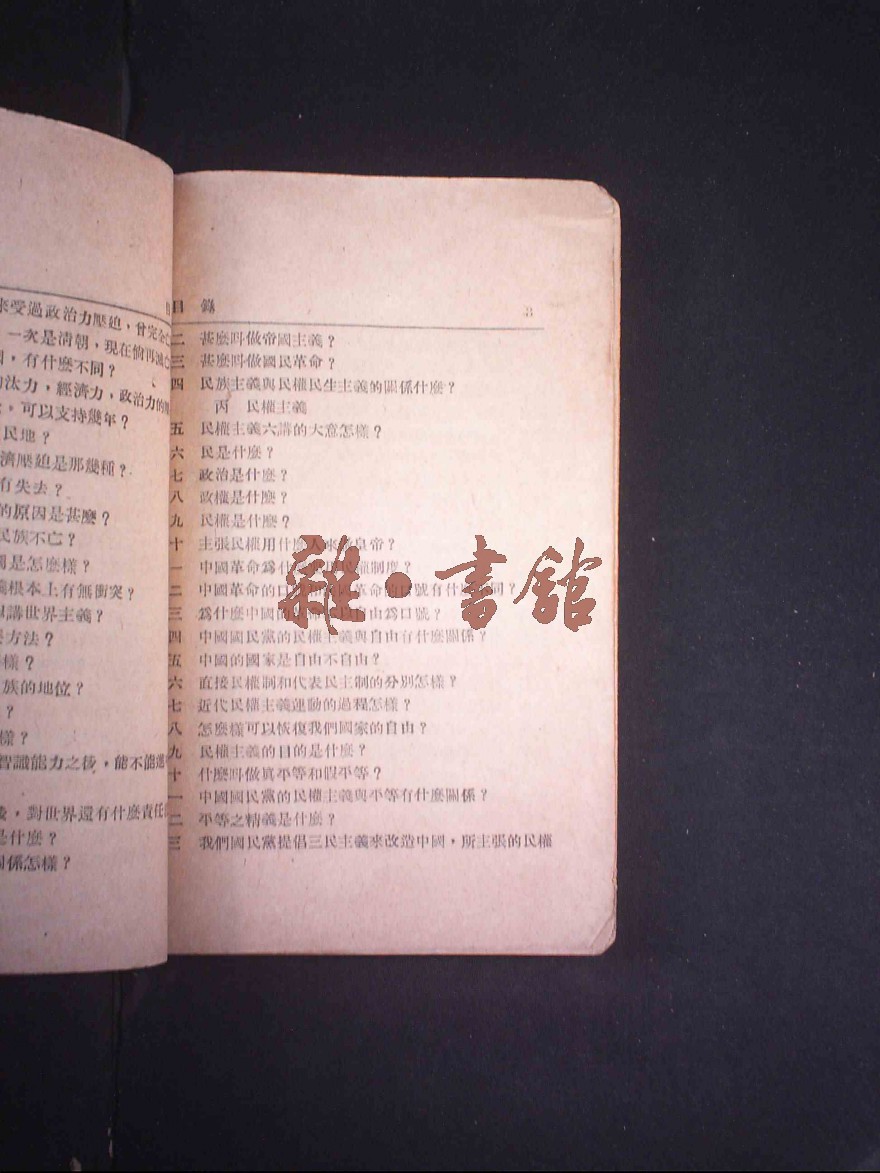 來受過政治力壓迫，曾完全亡
一次是清朝，現在倘再滅亡
，有什麼不同？
汰力，經濟力，政治力的
，可以支持幾年？
民地？
濟壓迫是那幾種？
有失去？
的原因是甚麼？
民族不亡？
是怎麼樣？
義根本上有無衝突？
講世界主義？
方法？
樣？
族的地位？
？
樣？
智識能力之後，能不能進
後，對世界還有什麼責任
是什麼？
關係怎樣？
目 錄 3
二 甚麼叫做帝國主義？
三 甚麼叫做國民革命？
四 民族主義與民權民生主義的關係什麼？
丙 民權主義
五 民權主義六講的大意怎樣？
六 民是什麼？
七 政治是什麼？
八 政權是什麼？
九 民權是什麼？
十 主張民權用什麼人來 皇帝？
一 中國革命爲什 民權制度？
二 中國革命的口號和 國革命的口號有什 同？
三 爲什麼中國的 自由爲口號？
四 中國國民黨的民權主義與自由有什麼關係？
五 中國的國家是自由不自由？
六 直接民權制和代表民主制的分別怎樣？
七 近代民權主義運動的過程怎樣？
八 怎麼樣可以恢復我們國家的自由？
九 民權主義的目的是什麼？
十 什麼叫做眞平等和假平等？
一 中國國民黨的民權主義與平等有什麼關係？
二 平等之精義是什麼？
三 我們國民黨提倡三民主義來改造中國，所主張的民權
雜·書館